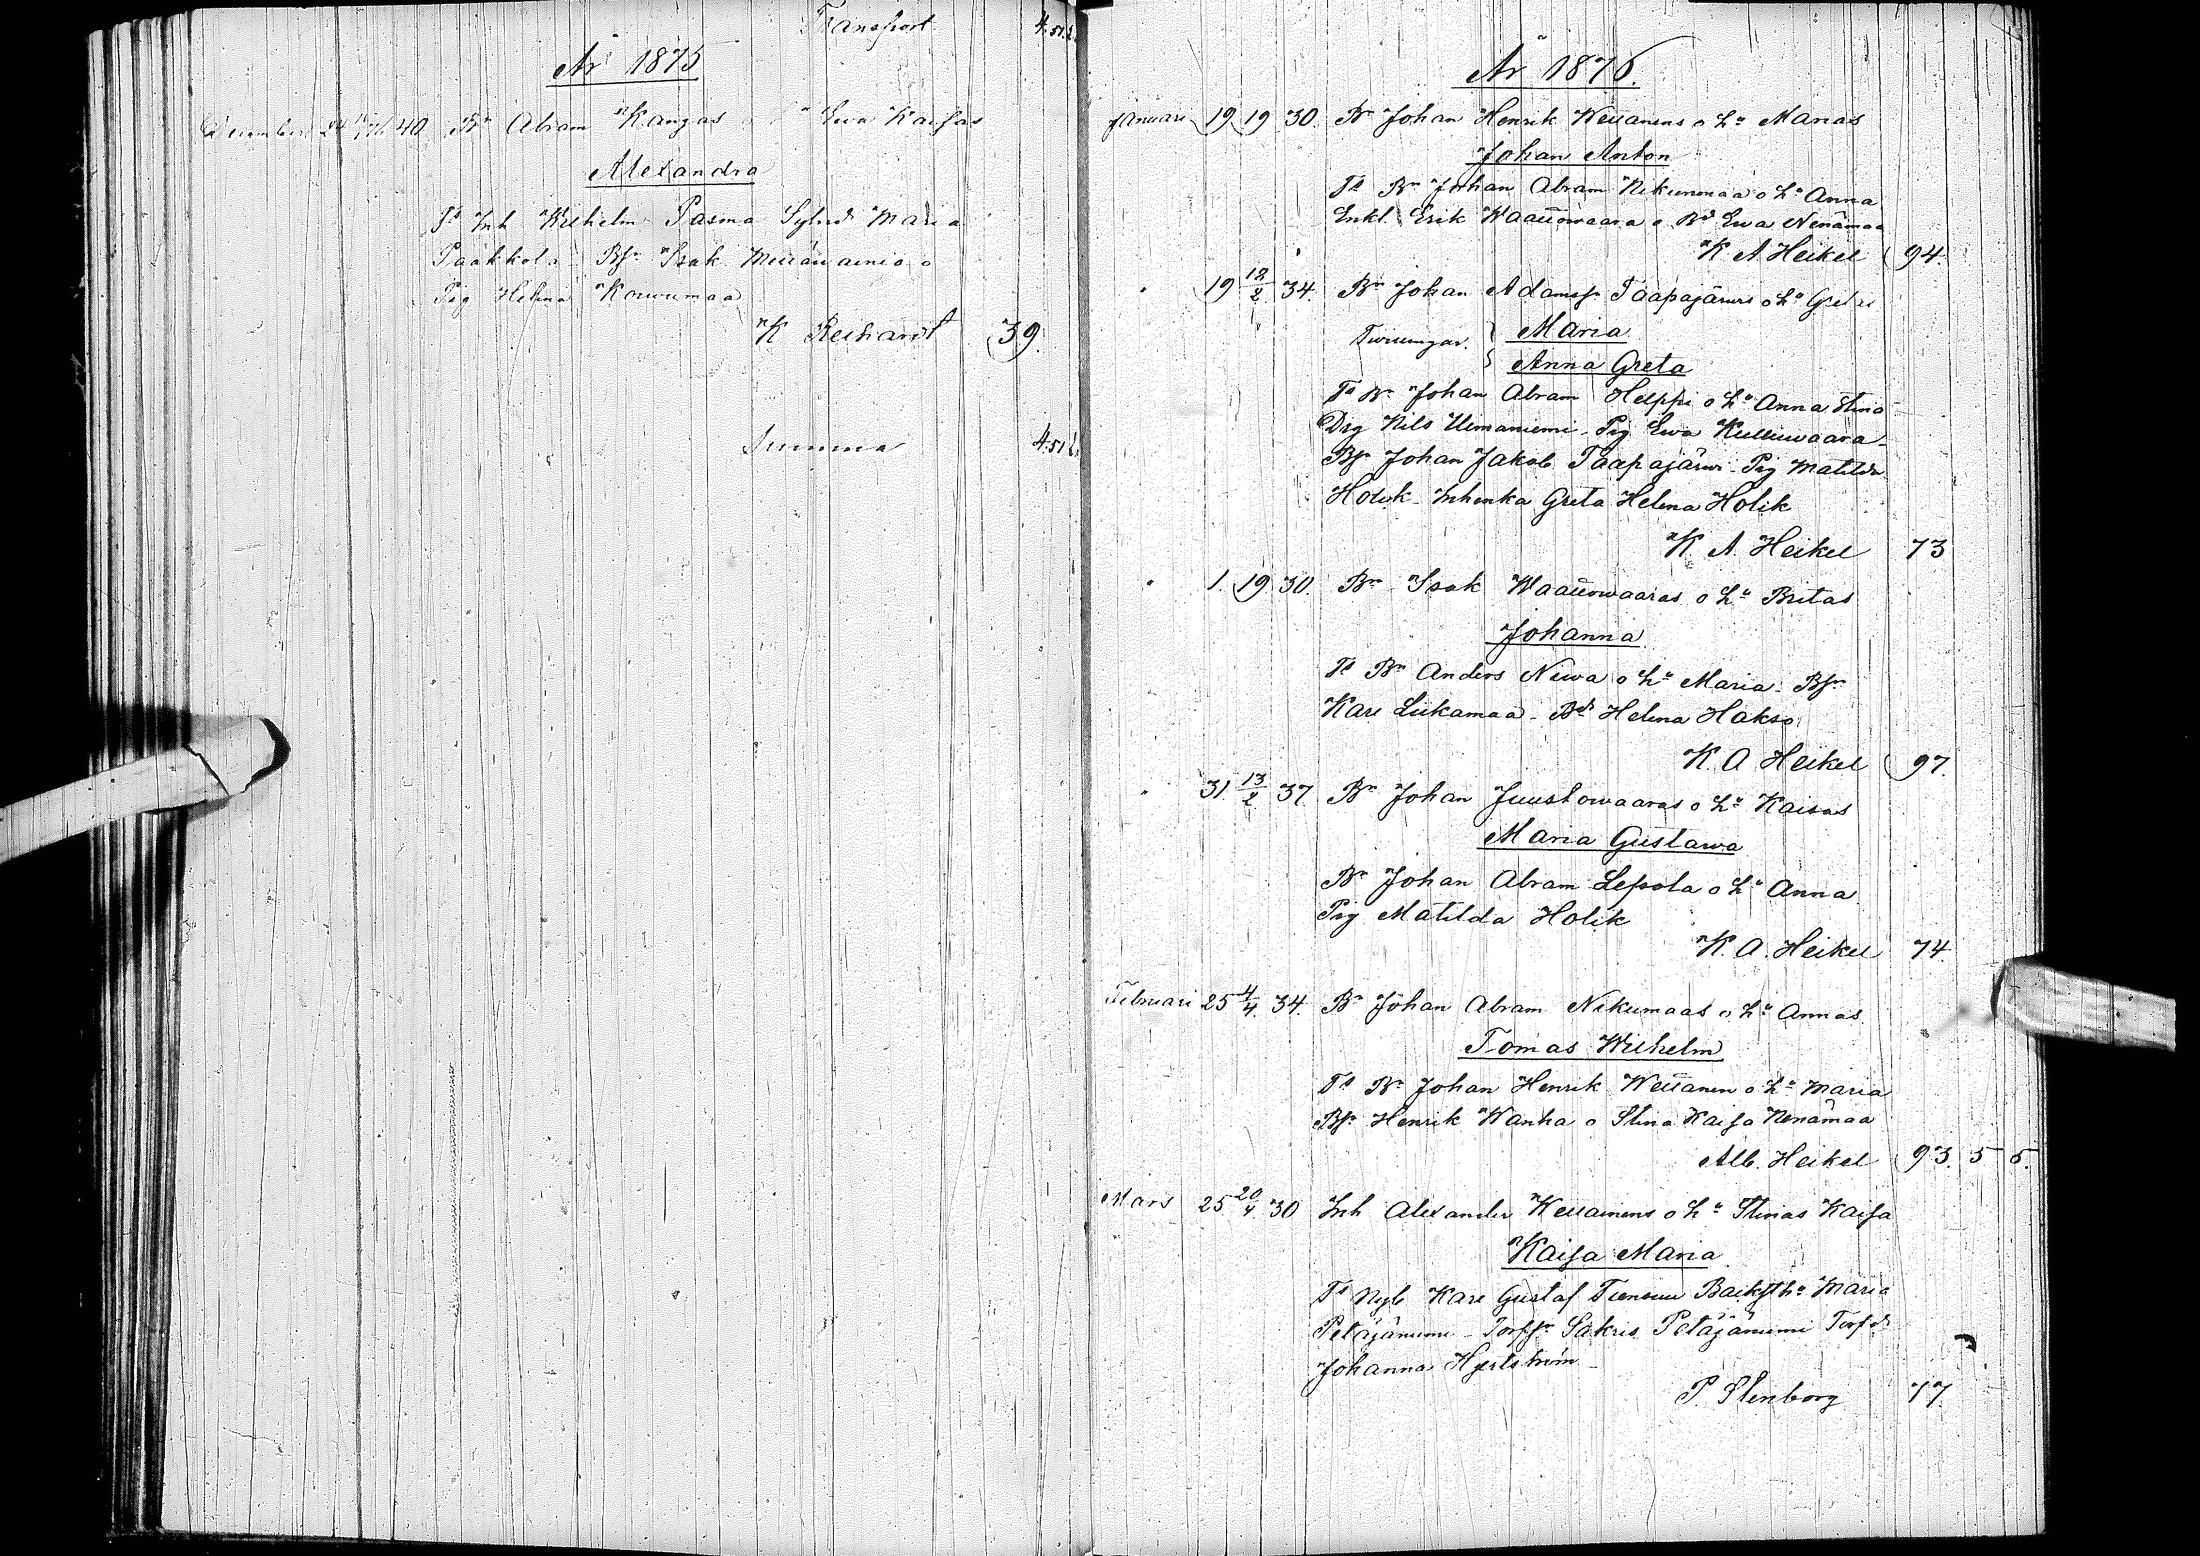 Transport 4.51.
År 1875
December 24 40. Bn Abram Kangas Ewa Kaisas
Alexandra
Ts Inh Wilhelm Pasma Sytnd Maria
Pääkkolä Bsn Isak
Pig Helena
K Reihardt 39.
Summa 4.51
År 1876.
Januari 19 19 30. Bn Johan Henrik o Ha Marias
Johan Anton
Ts Bn Johan Abram Nikunmaa o Ha Anna
Enkl. Erik o Bd Ewa Nenämaa
K A Heikel 94.
" 19 18/2 34. Bn Johan Adamss Taapajärwis o Ha Gretas
Twillingar. Maria
Anna Greta
Ts Bn Johan Abram Helppi o Ha Anna Stina
Drg Nils Ulmaniemi - Pig Ewa Kulluwaara -
Bsn Johan Jakob Taapajärwi - Pig Matilda
Holik - Inhenka Greta Helena Holik
K. A. Heikel 73
" 1. 19 30. Bn Isak o Ha Britas
Johanna
Ts Bn Anders Niwa o Ha Maria - Bsn
Karl Liikamaa - Bd Helena Hakso
K. A Heikel 97.
" 31. 13/2 37. Bn Johan Juustowaaras o Ha Kaisas
Maria Gustawa
Bn Johan Abram Lepola o Ha Anna
Pig Matilda Holik
K. A. Heikel 74.
Februari 25 4/4. 34. Bn Johan Abram Nikumaas o Ha Annas
Tomas Wilhelm
Ts Bn Johan Henrik o Ha Maria
Bsn Henrik Wanha o Stina Kaisa Nenämaa
Alb. Heikel 93. 5 5.
Mars 25 20/4. 30 Inh Alexander o Ha Stinas Kaisa
Kaisa Maria
Ts Nyb Karl Gustaf Maria
Petäjäniemi - Torpsn Sakris Petäjäniemi Torpd
Johanna Hjertström -
P. Stenborg 77.